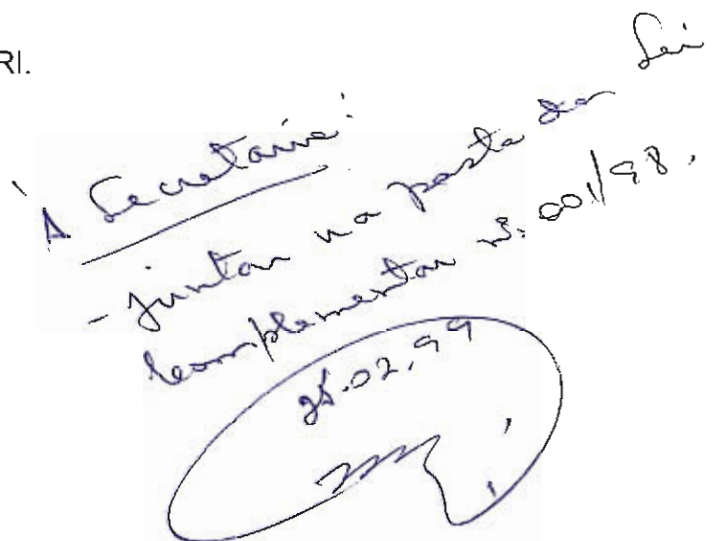 RI.
À Secretaria:
- juntar na pasta da Lei
Complementar nº. 001/98.
.02.99